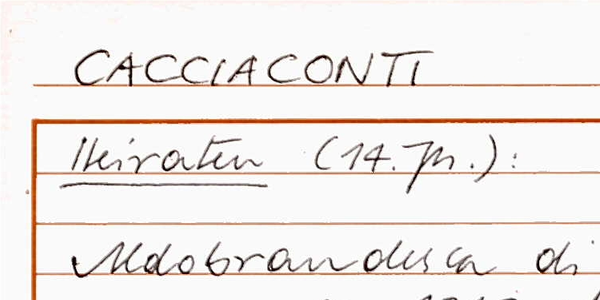 CACCIACONTI
Heiraten (14. Jh.):
Aldobrandesca di